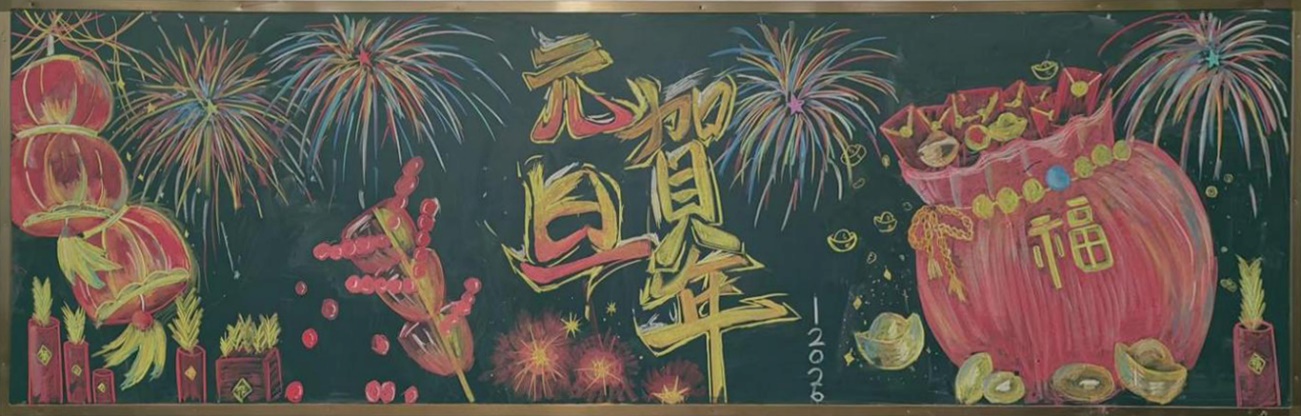 元旦
贺年
福
12026